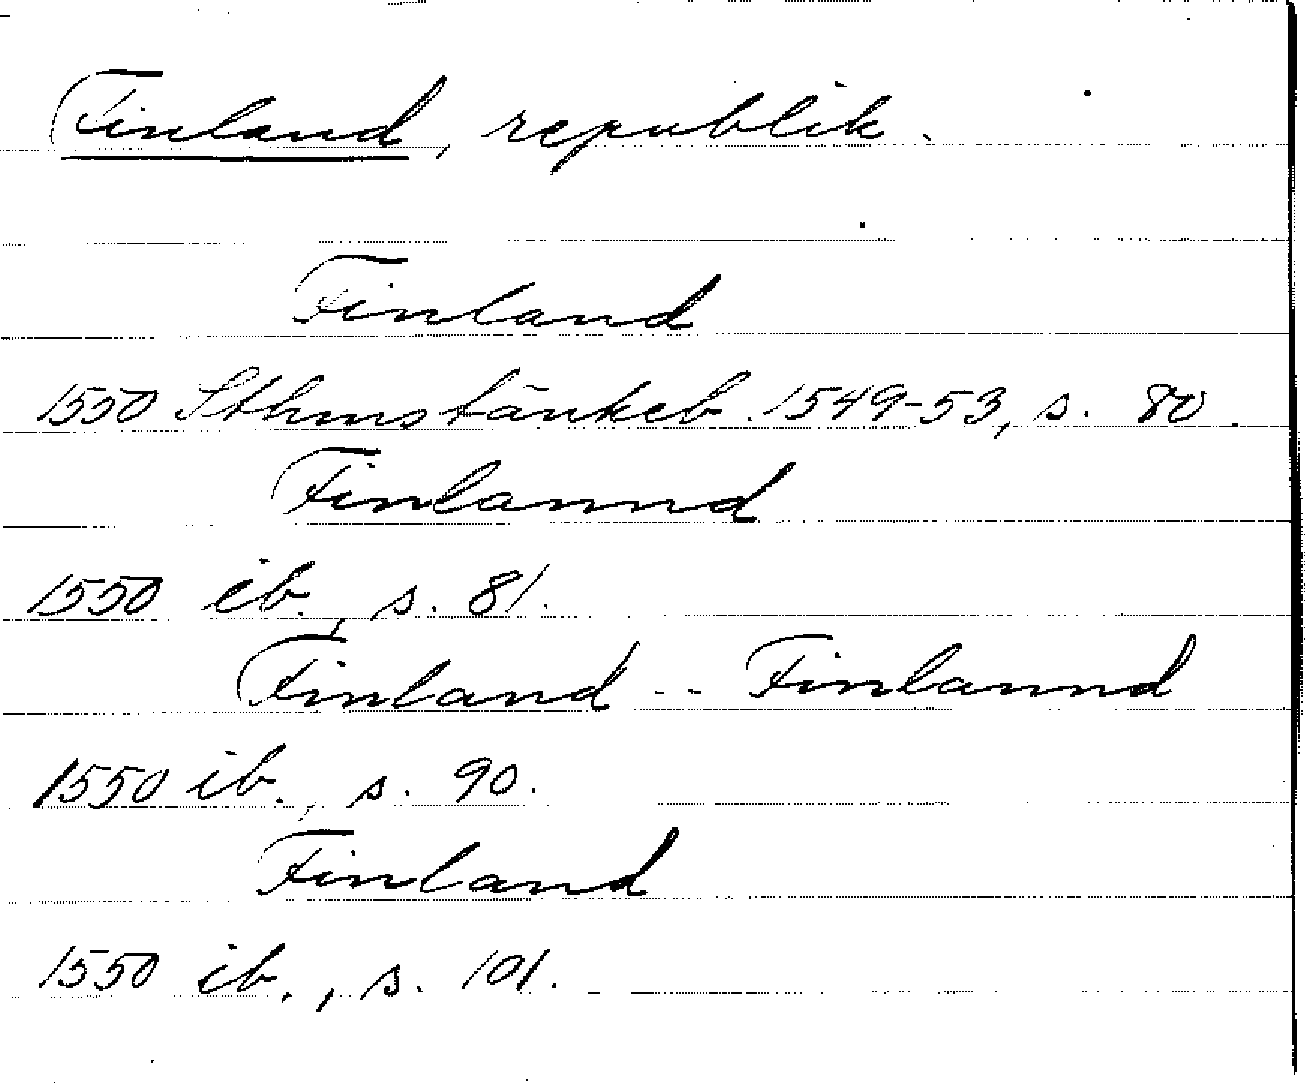 Finland, republik.
Finland
1550 Sthmstänkeb. 1549-53, s. 80.
Finlannd
1550 ib., s. 81.
Finland -- Finlannd
1550 ib., s. 90.
Finland
1550 ib., s. 101.